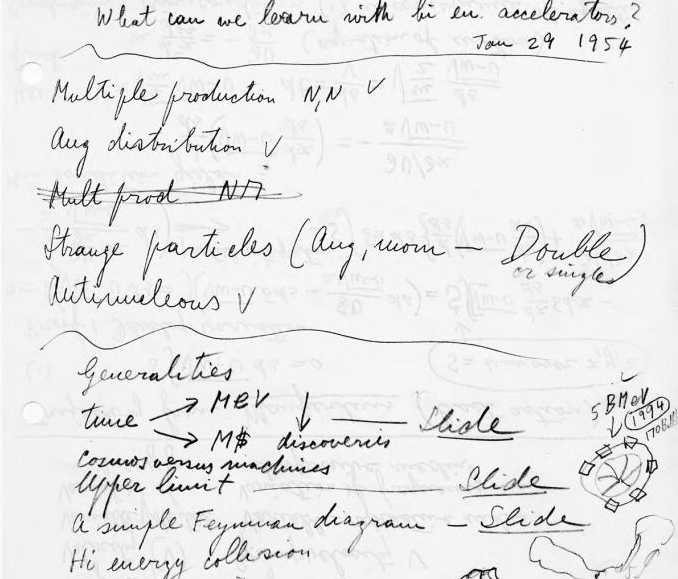 What can we learn with hi en. accelerators?
Jan 29 1954
Multiple production N,N V
Ang distribution V
Mult prod Nπ
Strange particles (Ang, mom – Double
or single)
Antinucleons V
Generalities
time → MeV ↓ — Slide
→ M$ discoveries
5 BMeV
1994
cosmos versus machines
Upper limit — Slide
A simple Feynman diagram – Slide
Hi energy collision